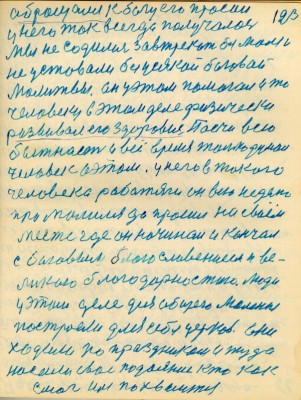 обращался к богу его просил 1913
у него так всегда получалось
Мы не садились завтрекат бы молит
не уставали бы всякой боговай
Молитвы. он этом помогал и то
человеку в этом деле физически
развивал его здоровия. Пости всю
быт насто в всё время так думал
человек в этом. у него в такого
человека работяги он вно недано
про молился да просил на своём
месте где он начинал и кончал
с боговым благословением и ве-
ликаю благодарностью. Люди
в этом деле для общего Моления
построели для себя церков. они
ходили по праздникам и туда
насили свое подаяние кто как
смог им похвалится